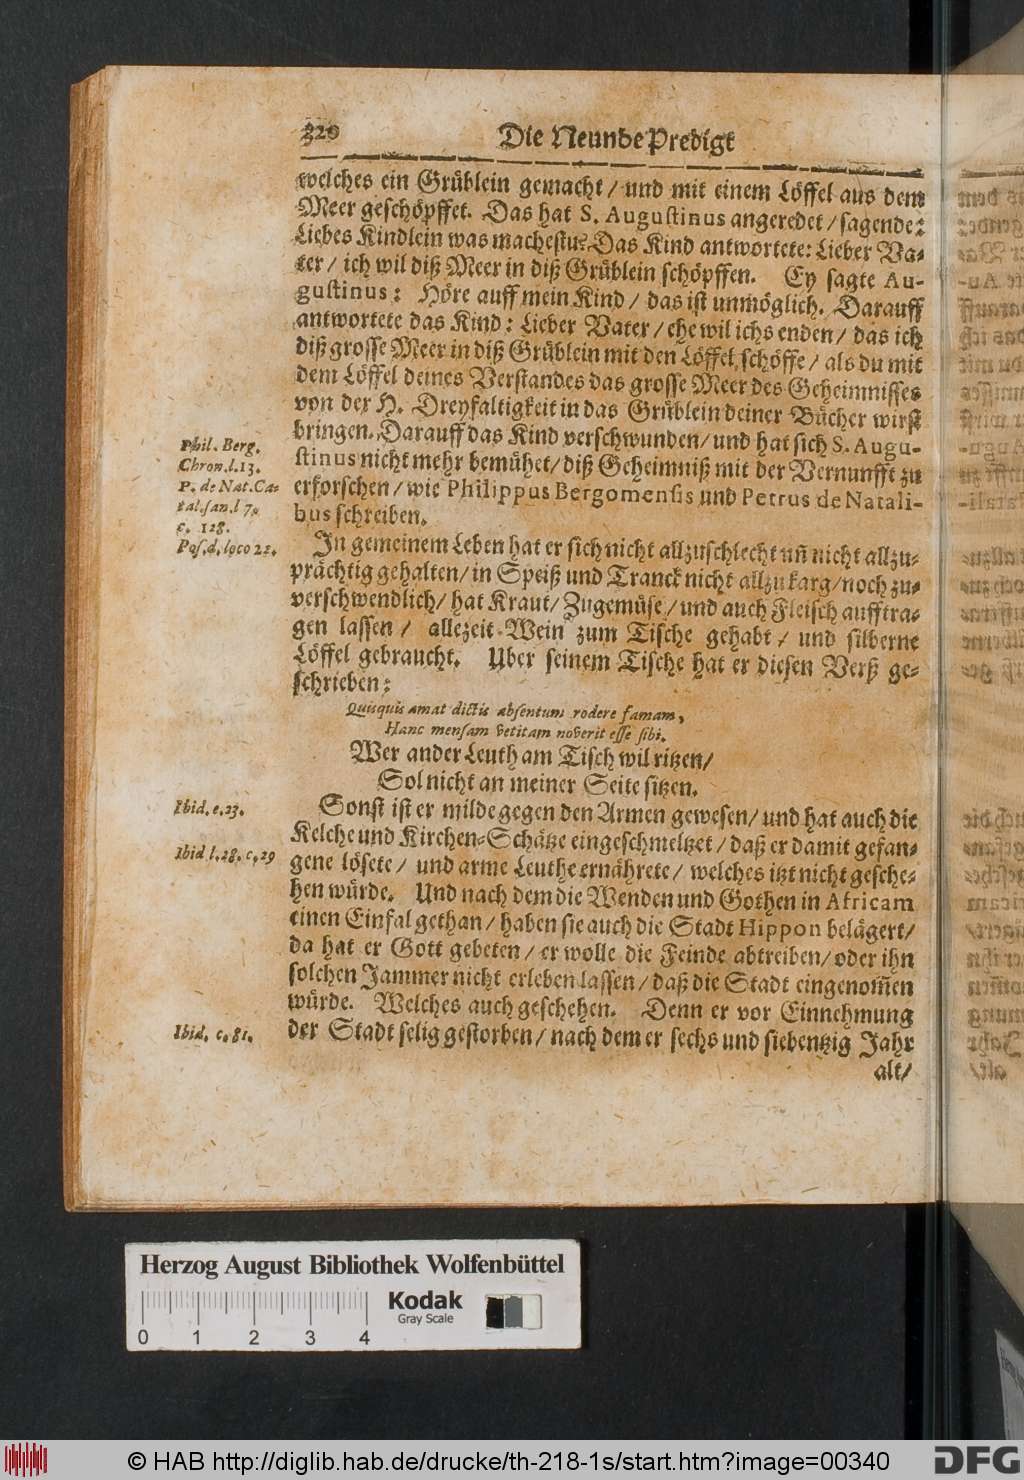 320 Die Neunde Predigt
welches ein Grüblein gemacht / und mit einem Löffel aus dem
Meer geschöpffet. Das hat S. Augustinus angeredet / sagende:
Liebes Kindlein was machestu? Das Kind antwortete: Lieber Va-
ter / ich wil diß Meer in diß Grüblein schöpffen. Ey sagte Au-
gustinus: Höre auff mein Kind / das ist unmöglich. Darauff
antwortete das Kind: Lieber Vater / ehe wil ichs enden / das ich
diß grosse Meer in diß Grüblein mit den Löffel schöffe / als du mit
dem Löffel deines Verstandes das grosse Meer des Geheimnisses
von der H. Dreyfaltigkeit in das Grüblein deiner Bücher wirst
bringen. Darauff das Kind verschwunden / und hat sich S. Augu-
stinus nicht mehr bemühet / diß Geheimniß mit der Vernunfft zu
erforschen / wie Philippus Bergomensis und Petrus de Natali-
bus schreiben.
Phil. Berg.
Chron. l. 13.
P. de Nat. Ca-
tal. san. l 7.
c. 128.
Pos. d. loco 22.
In gemeinem Leben hat er sich nicht allzuschlecht uñ nicht allzu-
prächtig gehalten / in Speiß und Tranck nicht allzukarg / noch zu-
verschwendlich / hat Kraut / Zugemüse / und auch Fleisch aufftra-
gen lassen / allezeit Wein zum Tische gehabt / und silberne
Löffel gebraucht. Uber seinem Tische hat er diesen Verß ge-
schrieben:
Quisquis amat dictis absentum rodere famam,
Hanc mensam vetitam noverit esse sibi.
Wer ander Leuth am Tisch wil ritzen /
Sol nicht an meiner Seite sitzen.
Ibid. e. 23.
Sonst ist er milde gegen den Armen gewesen / und hat auch die
Kelche und Kirchen-Schätze eingeschmeltzet / daß er damit gefan-
Ibid l. 28. c. 29
gene lösete / und arme Leuthe ernährete / welches itzt nicht gesche-
hen würde. Und nach dem die Wenden und Gothen in Africam
einen Einfal gethan / haben sie auch die Stadt Hippon belägert /
da hat er Gott gebeten / er wolle die Feinde abtreiben / oder ihn
solchen Jammer nicht erleben lassen / daß die Stadt eingenom̃en
würde. Welches auch geschehen. Denn er vor Einnehmung
Ibid. c. 81.
der Stadt selig gestorben / nach dem er sechs und siebentzig Jahr
alt /
Herzog August Bibliothek Wolfenbüttel
Kodak
Gray Scale
0 1 2 3 4
© HAB http://diglib.hab.de/drucke/th-218-1s/start.htm?image=00340
DFG